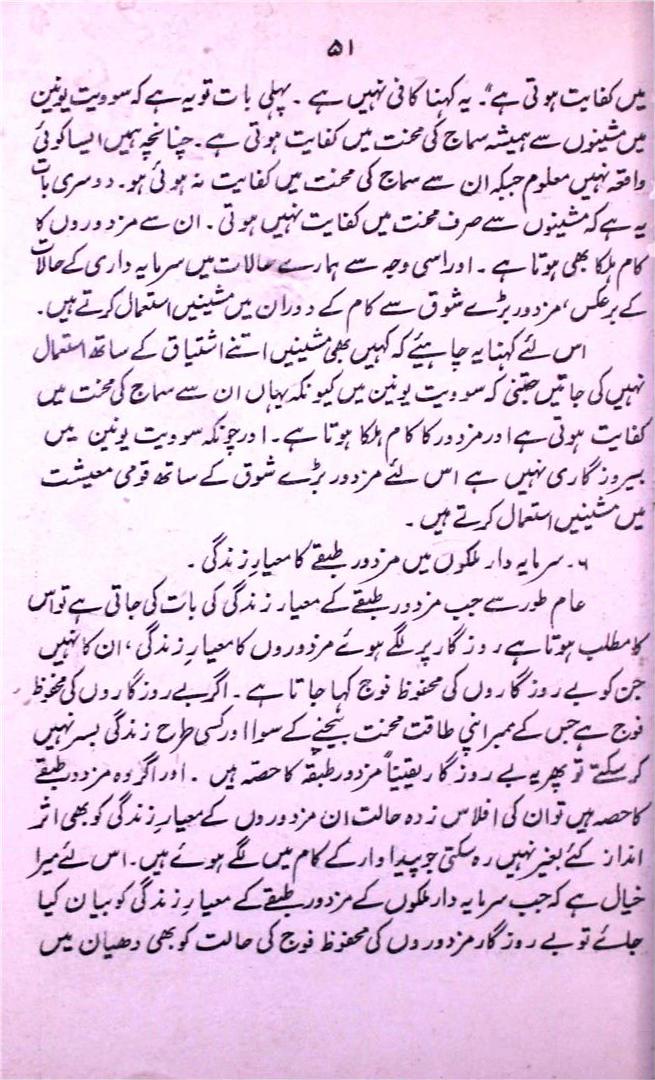 ۵۱
میں کفایت ہوتی ہے"۔ یہ کہنا کافی نہیں ہے ۔ پہلی بات تو یہ ہے کہ سوویت یونین
میں مشینوں سے ہمیشہ سماج کی محنت میں کفایت ہوتی ہے۔ چنانچہ ہمیں ایسا کوئی
واقعہ نہیں معلوم جبکہ ان سے سماج کی محنت میں کفایت نہ ہوئی ہو۔ دوسری بات
یہ ہے کہ مشینوں سے صرف محنت میں کفایت نہیں ہوتی ۔ ان سے مزدوروں کا
کام ہلکا بھی ہوتا ہے ۔ اور اسی وجہ سے ہمارے حالات میں سرمایہ داری کے حالات
کے برعکس، مزدور بڑے شوق سے کام کے دوران میں مشینیں استعمال کرتے ہیں۔
اس لئے کہنا یہ چاہیئے کہ کہیں بھی مشینیں اتنے اشتیاق کے ساتھ استعمال
نہیں کی جاتیں جتنی کہ سوویت یونین میں کیونکہ یہاں ان سے سماج کی محنت میں
کفایت ہوتی ہے اور مزدور کا کام ہلکا ہوتا ہے ۔ اور چونکہ سوویت یونین میں
بیروزگاری نہیں ہے اس لئے مزدور بڑے شوق کے ساتھ قومی معیشت
میں مشینیں استعمال کرتے ہیں ۔
۶۔ سرمایہ دار ملکوں میں مزدور طبقے کا معیارِ زندگی ۔
عام طور سے جب مزدور طبقے کے معیار زندگی کی بات کی جاتی ہے تو اس
کا مطلب ہوتا ہے روزگار پر لگے ہوئے مزدوروں کا معیارِ زندگی، ان کا نہیں
جن کو بے روزگاروں کی محفوظ فوج کہا جاتا ہے ۔ اگر بے روزگاروں کی محفوظ
فوج ہے جس کے ممبر اپنی طاقت محنت بیچنے کے سوا اور کسی طرح زندگی بسر نہیں
کر سکتے تو پھر یہ بے روزگار یقیناً مزدور طبقہ کا حصّہ ہیں ۔ اور اگر وہ مزدور طبقے
کا حصہ ہیں تو ان کی افلاس زدہ حالت ان مزدوروں کے معیارِ زندگی کو بھی اثر
انداز کئے بغیر نہیں رہ سکتی جو پیداوار کے کام میں لگے ہوئے ہیں۔ اس لئے میرا
خیال ہے کہ جب سرمایہ دار ملکوں کے مزدور طبقے کے معیارِ زندگی کو بیان کیا
جائے تو بے روزگار مزدوروں کی محفوظ فوج کی حالت کو بھی دھیان میں